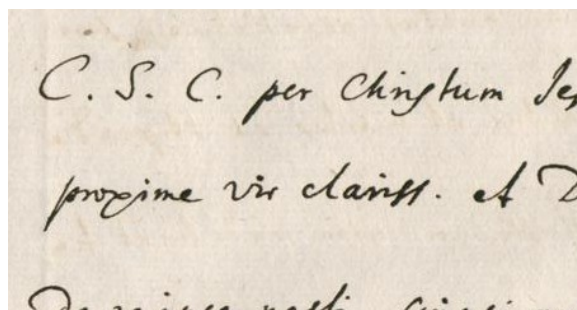 C. S. C. per Christum Jes
proxime vir clariss. et D